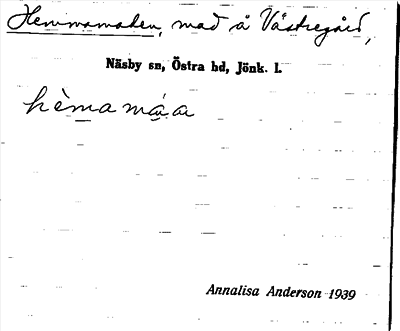 Hemmamaden, mad å Västregård,
Näsby sn, Östra hd, Jönk. l.
hèmamáa
Annalisa Anderson 1939